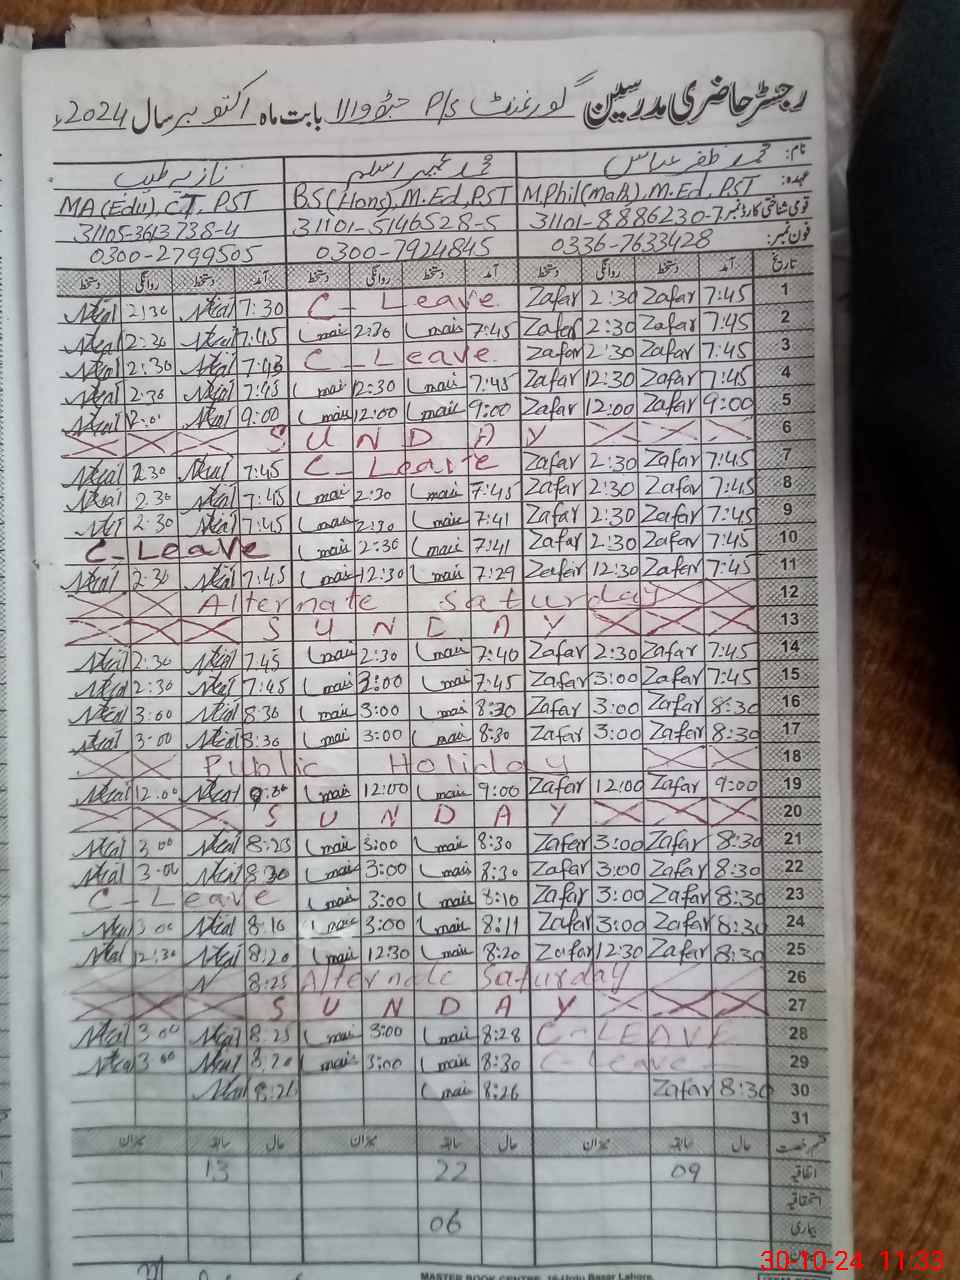 رجسٹر حاضری مدرسین گورنمنٹ P/s جٹو والا بابت ماہ اکتوبر سال 2024ء
نام: محمد ظفر عباس محمد عمیر اسلم نازیہ طیب
عہدہ: M.Phil(Math), M.Ed, PST BS(Hons), M.Ed, PST MA(Edu), CT, PST
قومی شناختی کارڈ نمبر 31101-8886230-7 31101-5146528-5 31105-3613738-4
فون نمبر: 0336-7633428 0300-7924845 0300-2799505
تاریخ آمد دستخط روانگی دستخط آمد دستخط روانگی دستخط آمد دستخط روانگی دستخط
1 7:45 Zafar 2:30 Zafar C-Leave 7:30 2:30
2 7:45 Zafar 2:30 Zafar 7:45 2:30 7:45 2:30
3 7:45 Zafar 2:30 Zafar C-Leave 7:43 2:30
4 7:45 Zafar 12:30 Zafar 7:45 12:30 7:45 2:30
5 9:00 Zafar 12:00 Zafar 9:00 12:00 9:00
6 SUNDAY
7 7:45 Zafar 2:30 Zafar C-Leave 7:45 2:30
8 7:45 Zafar 2:30 Zafar 7:45 2:30 7:45 2:30
9 7:45 Zafar 2:30 Zafar 7:41 2:30 7:45 2:30
10 7:45 Zafar 2:30 Zafar 7:41 2:30 C-Leave
11 7:45 Zafar 12:30 Zafar 7:29 12:30 7:45 2:30
12 Alternate Saturday
13 SUNDAY
14 7:45 Zafar 2:30 Zafar 7:40 2:30 7:45 2:30
15 7:45 Zafar 3:00 Zafar 7:45 3:00 7:45 2:30
16 8:30 Zafar 3:00 Zafar 8:30 3:00 8:30 3:00
17 8:30 Zafar 3:00 Zafar 8:30 3:00 8:30 3:00
18 Public Holiday
19 9:00 Zafar 12:00 Zafar 9:00 12:00 12:00
20 SUNDAY
21 8:30 Zafar 3:00 Zafar 8:30 3:00 8:25 3:00
22 8:30 Zafar 3:00 Zafar 8:30 3:00 8:30 3:00
23 8:30 Zafar 3:00 Zafar 8:10 3:00 C-Leave
24 8:30 Zafar 3:00 Zafar 8:11 3:00 8:10 3:00
25 8:30 Zafar 12:30 Zafar 8:20 12:30 8:20 12:30
26 Alternate Saturday 8:25
27 SUNDAY
28 C-LEAVE 8:28 3:00 8:25 3:00
29 C-Leave 8:30 3:00 8:20 3:00
30 8:30 Zafar 8:26 8:26
31
قسم رخصت حال سابقہ میزان حال سابقہ میزان حال سابقہ میزان
اتفاقیہ 09 22 13
استحقاقیہ
بیماری 06
MASTER BOOK CENTRE, 16-Urdu Bazar Lahore.
30-10-24 11:33